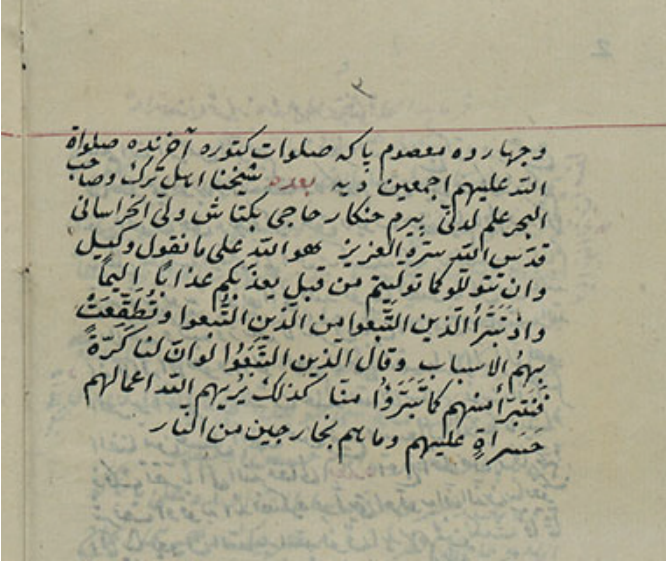 ٣
وچهارده معصوم پاكه صلوات كتوره آخرنده صلواة
الله عليهم اجمعين ديه بعده شيخنا اهل ترك وصاحب
البحر علم لدنّى پيرم حنكار حاجى بكتاش ولى الخراسانى
قدّس الله سرّه العزيز هو الله على ما نقول وكيل
وان تتولّوا كما توليتم من قبل يعذّبكم عذابًا اليماً
واذ تَبَرَّأ الّذين اتُّبعوا من الّذين اتَّبعوا وتُطقّعَتْ
بِهمُ الاسباب وقال الّذين اتَّبَعُوا لوانّ لنا كَرّةً
فَنَتبرّأ منهم كما تَبَرَّؤُا منّا كذلك يُريهم الله اعمالهم
حَسَراةٍ عليهم وما هم بخارجين من النّار